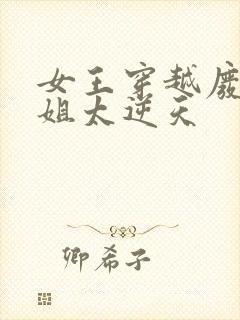 女王穿越废
姐太逆天
卿希子